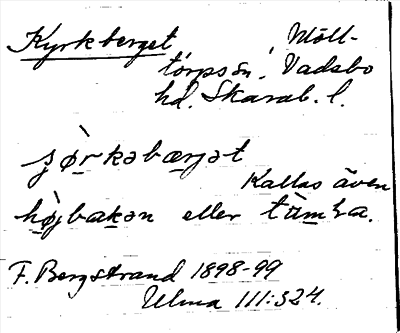 Kyrkberget, Möll-
torps sn, Vadsbo
hd. Skarab. l.
ʂø̀rkəbærjət
Kallas även
hø̀jbakən eller
F. Bergstrand 1898-99
Ulma 111:324.